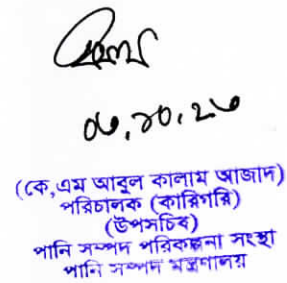 (কে,এম আবুল কালাম আজাদ)
পরিচালক (কারিগরি)
(উপসচিব)
পানি সম্পদ পরিকল্পনা সংস্থা
পানি সম্পদ মন্ত্রণালয়